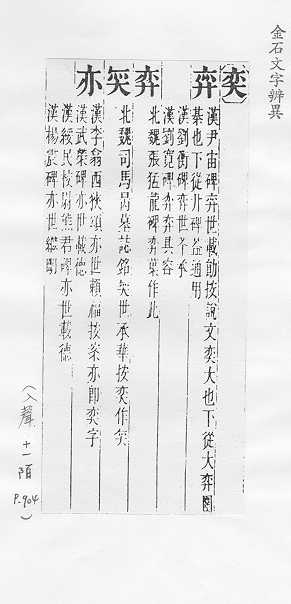 金石文字辨異
奕
弈 漢尹宙碑弈世載勛按說文奕大也下從大弈圍
棊也下從廾碑蓋通用
漢劉衡碑弈世丕承
漢劉寬碑弈弈其容
弈 北魏張猛龍碑弈葉作此
㚑 北魏司馬芮墓誌銘世承華按奕作
亦 漢李翕西狹頌亦世賴福按亦即奕字
漢武榮碑亦世載德
漢綏民校尉熊君碑亦世載德
漢楊震碑亦世繼明
(入聲 十一陌 P.904)